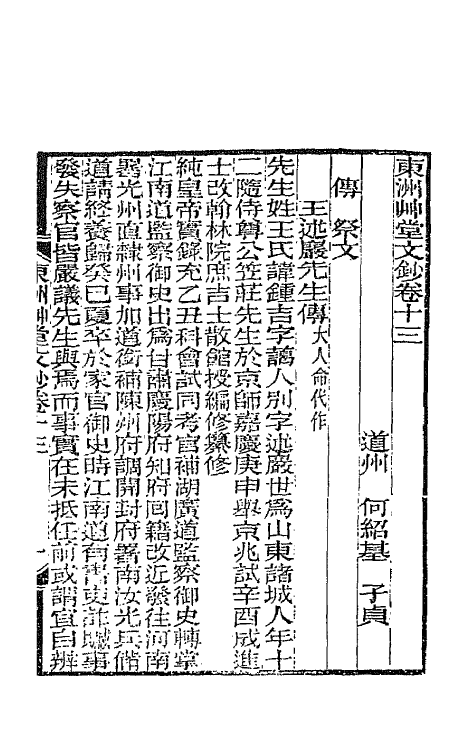 東洲艸堂文鈔卷十三
道州 何紹基 子貞
傳 祭文
王述巖先生傳大人命代作
先生姓王氏諱鍾吉字藹人別字述巖世為山東諸城人年十
二隨侍尊公笠莊先生於京師嘉慶庚申舉京兆試辛酉成進
士改翰林院庶吉士散館授編修纂修
純皇帝實錄充乙丑科會試同考官補湖廣道監察御史轉掌
江南道監察御史出為甘肅慶陽府知府回籍改近發往河南
署光州直隸州事加道銜補陳州府調開封府署南汝光兵備
道請終養歸癸巳夏卒於家官御史時江南道有書吏詐贓事
發失察官皆嚴議先生與焉而事實在未抵任前或謂宜自辨
東洲艸堂文鈔卷十三 一